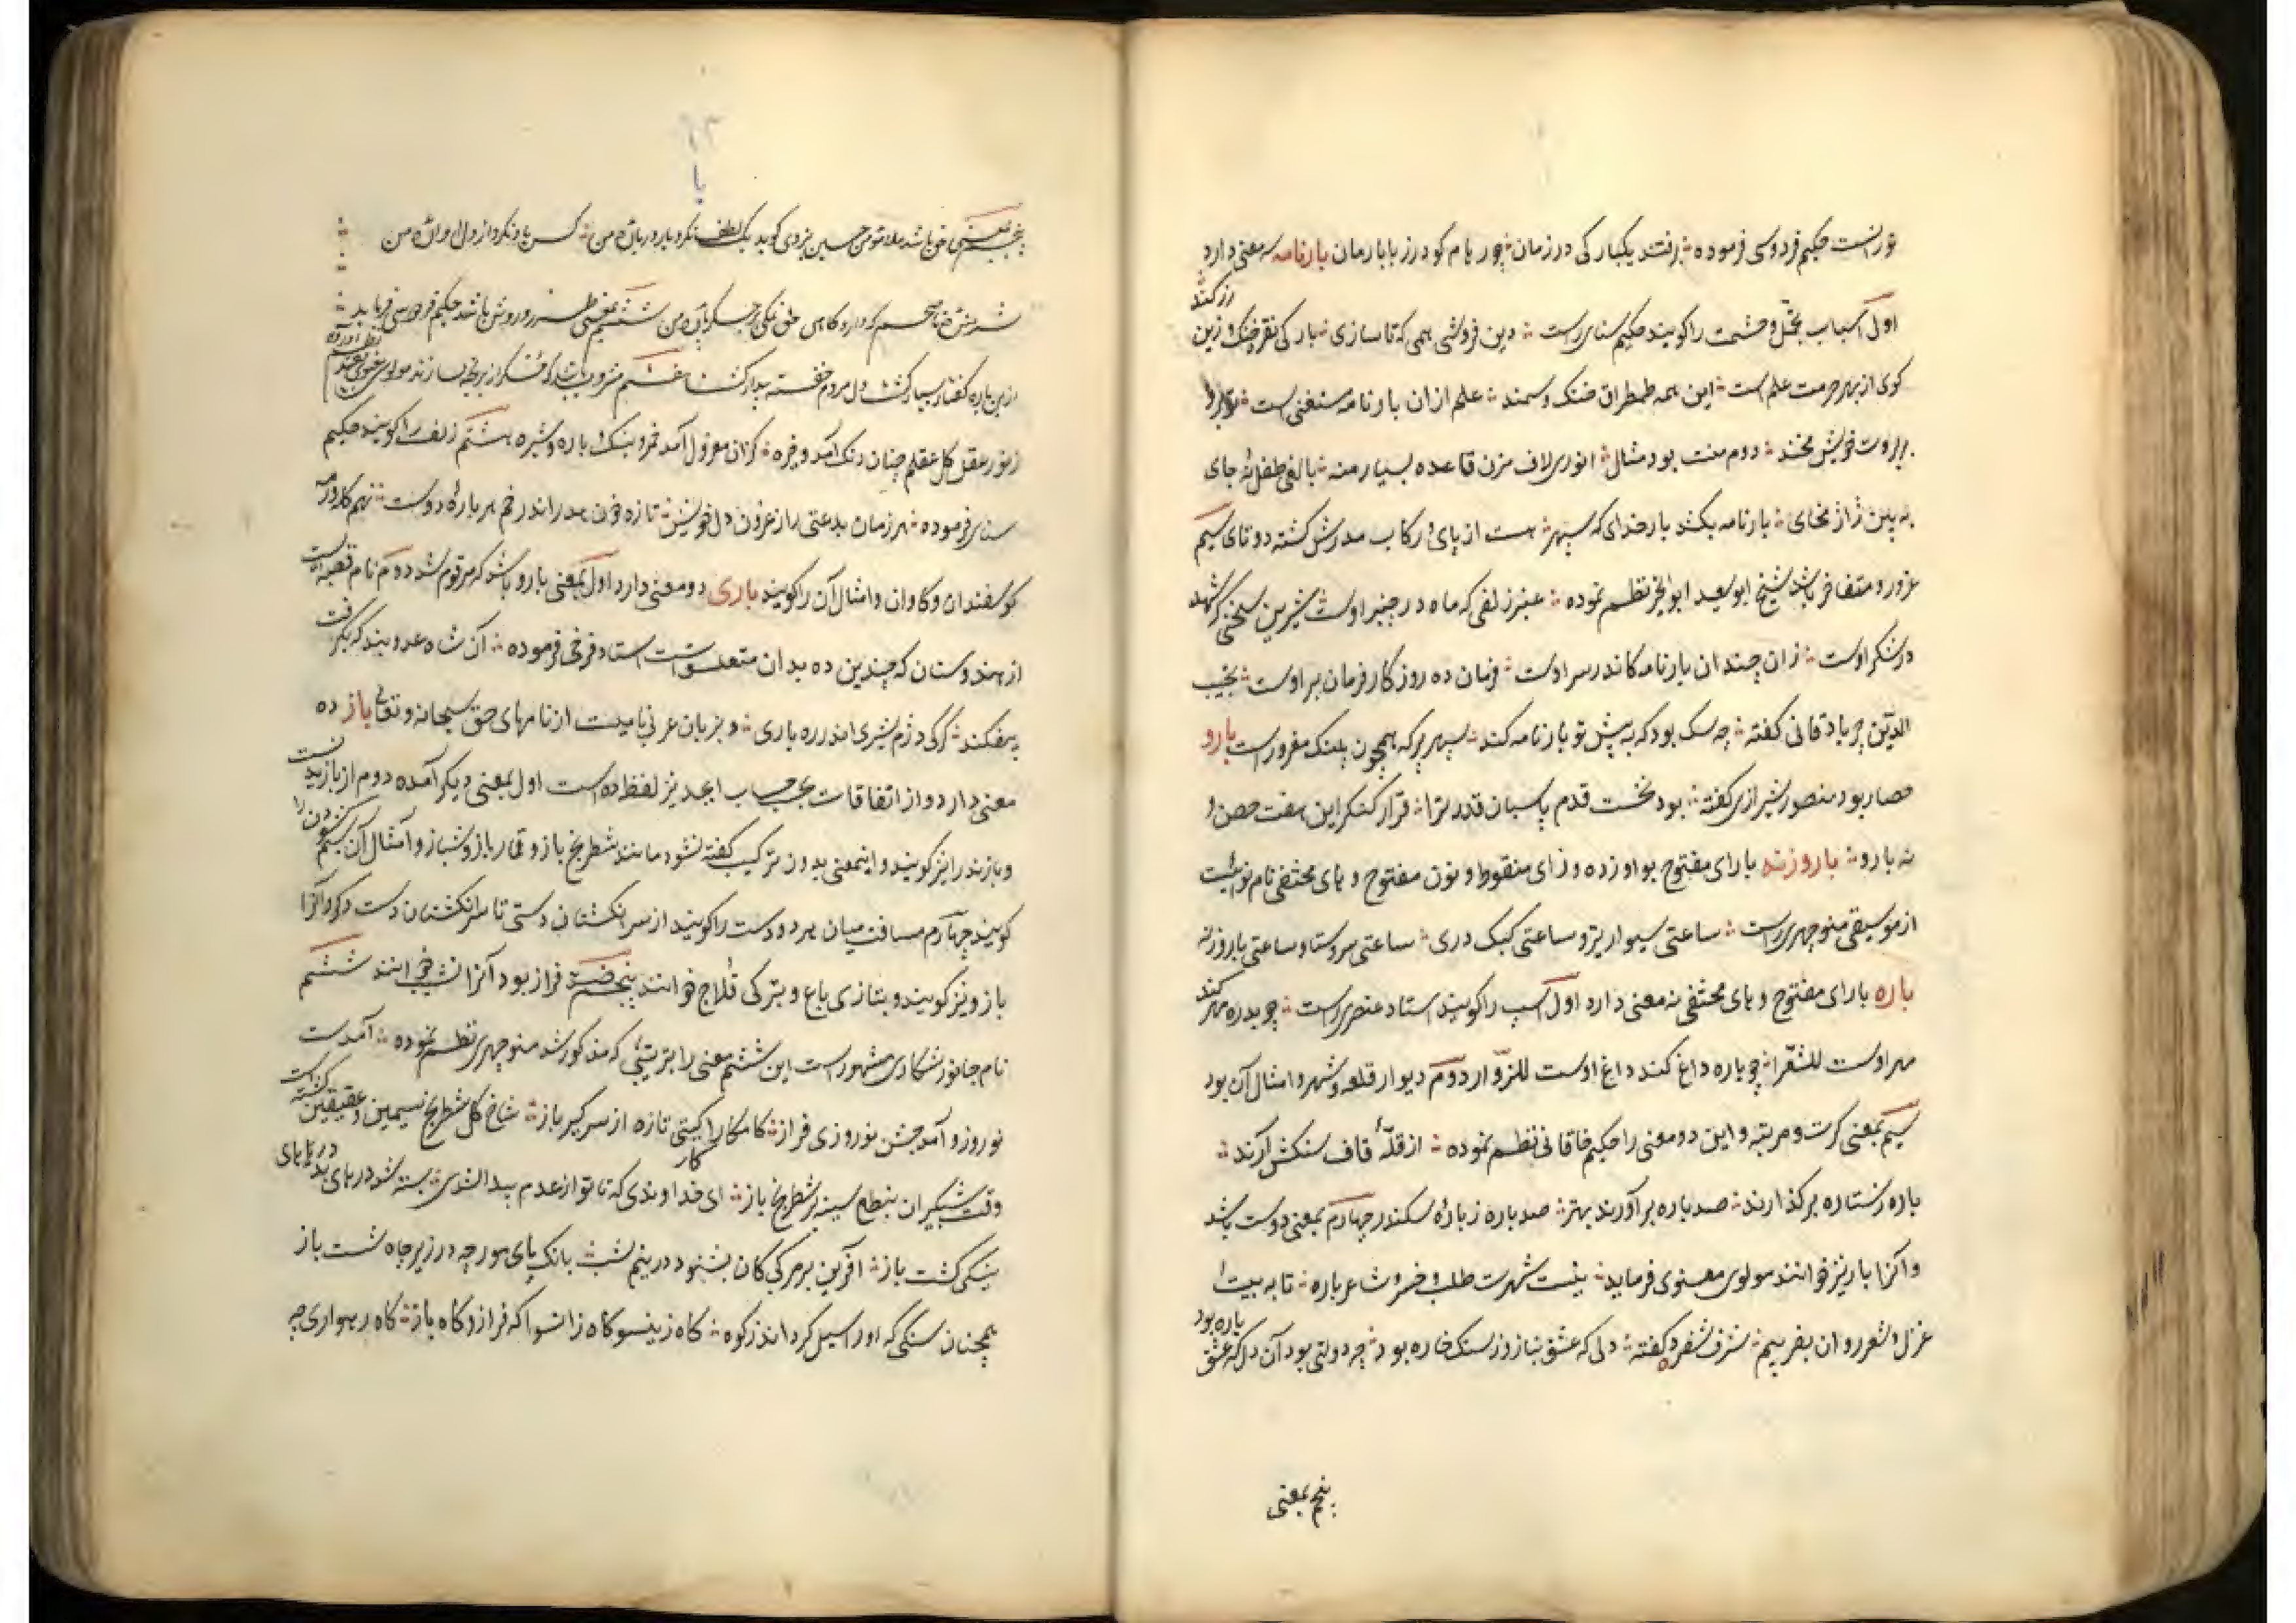 تورانست حکیم فردوسی فرموده ؞ برفتند یکبار کی در زمان ؞ چو رهام کودرز با بارمان بارنامه سه معنی دارد
اول اسباب تجمل و حشمت را کویند حکیم سنایی راست ؞ دین فروشی همی که تا سازی ؞ بار کی نقره خنک و زین
زر کند
کوی از بهر حرمت علم است ؞ این همه طمطراق خنک و سمند ؞ علم از ان بارنامه مستغنی است ؞ تو برو
بر بروت خویش مخند ؞ دوم منت بود مثال ؞ انوری لاف مزن قاعده بسیار منه ؞ بالغی طفل نه جای
ببین ژاژ مخای ؞ بارنامه بکشد بار خدای که سپهر ؞ هست از پای رکاب مدرش کشته دوتای سیم
غرور و تفاخر باشد شیخ ابو سعید ابو الخیر نظم نموده ؞ عنبر زلفی که ماه در چنبر اوست شیرین سخنی که شهد
در شکر اوست ؞ زان چندان بارنامه کاندر سر اوست ؞ فرمان ده روزکار فرمان بر اوست ؞ نجیب
الدین جربادقانی کفته ؞ چه سک بود که به پیش تو بارنامه کند ؞ سپهر پرکه همچون پلنک مغرور است بارو
حصار بود منصور شیرازی کفته ؞ بود نخست قدم پاسبان قدر ترا ؞ قرار کنکر این هفت حصن
نه بارو ؞ باروزنه بارای مفتوح بواو زده و زای منقوط و نون مفتوح و های مختفی نام نوائیست
از موسیقی منوچهری راست ؞ ساعتی سیوار تیر و ساعتی کبک دری ؞ ساعتی سروستاه و ساعتی باروزنه
باره بارای مفتوح و های مختفی نه معنی دارد اول اسپ را کویند استاد عنصری راست ؞ چو بدره مهر کند
مهر اوست للشعرا ؞ چو باره داغ کند داغ اوست للزوار دوم دیوار قلعه و شهر و امثال آن بود
سیم بمعنی کرت و مرتبه و این دو معنی را حکیم خاقانی نظم نموده ؞ از قله قاف سنکش آرند ؞
باره ز ستاره برکذارند ؞ صد باره برآورند بهتر ؞ صد باره ز باره سکندر چهارم بمعنی دوست باشد
و آنرا بار نیز خوانند مولوی معنوی فرماید ؞ نیست شهرت طلب و خسرو شاعر باره ؞ تا به بیت
غزل و شعر روان بفریبیم ؞ شرف شفروه کفته ؞ دلی که عشق نبازد ز سنک خاره بود ؞ چه دولتی بود آن دل که عشق
باره بود
پنجم بمعنی
با
پنجم بمعنی حق باشد ملا مومن حسین یزدی کوید یک لطف نکرد یار در باره من ؞ کس یاد نکرد از دل آواره من
شد ریش که دارد کاهی حق نمکی بر جکر پاره من ششم بمعنی طرز و روش باشد حکیم فردوسی فرماید ؞
ازین باره کفتار بسیار کشت دل مردم خفته بیدار کشت هفتم مشروبی باشد که مسکر از برنج سازند مولوی معنوی
نظم آورده
ز نور عقل کل عقلم چنان دنک آمد و خیره ؞ کزان معزول آمد خمر و بنک و باره و شیره هشتم زلف را کویند حکیم
سنایی فرموده ؞ هر زمان بدعتی راز عزون دل خویش ؞ تازه خون بدراند خم هر باره دوست ؞ نهم کله و رمه
کوسفندان و کاوان و امثال آن را کویند باری دو معنی دارد اول بمعنی بارو باشد که مرقوم شد دوم نام قصبه است
از هندوستان که چندین ده بدان متعلق است استاد فرخی فرموده ؞ آن شاه عدو بند که بکرفت
بیفکند ؞ کرکی دژم شیری اندر ره باری ؞ و بزبان عربی نامیست از نامهای حق سبحانه و تعالی باز ده
معنی دارد و از اتفاقات بحسب حساب ابجد نیز لفظ ده است اول بمعنی دیکر آمده دوم از بازیدنست
و بازنده را نیز کویند و اینمعنی بدون ترکیب کفته نشود مانند شطرنج باز و قمار باز و شب باز و امثال آن سیم
کشودن را
کویند چهارم مسافت میان هر دو دست را کویند از سر انکشتان دستی تا سر انکشتان دست دکر و آنرا
باز و نیز کویند و بتازی باع و بترکی قلاج خوانند پنجم ضد فراز بود آنرا نشیب خوانند ششم
نام جانور شکاری مشهور است این ششم معنی را بترتیبی که مذکور شد منوچهری نظم نموده ؞ آمدت
نوروز و آمد جشن نوروزی فراز ؞ کامکارا کیتی تازه از سر کیر باز ؞ شاخ کل شطرنج سیمین و عقیقین
کشته است
وقت شبکیران بنطع سبزه بر شطرنج باز ؞ ای خداوندی که تا تو از عدم پیدا شدی ؞ بسته شد درهای بد
درهای
نیکی کشت باز ؞ آفرین بر مرکبی کان بشنود در نیم شب ؞ بانک پای مورچه در زیر چاه شست باز
همچنان سنکی که او را سیل کرداند ز کوه ؞ کاه زینسو کاه زانسو که فراز و کاه باز ؞ کاه رهواری چه